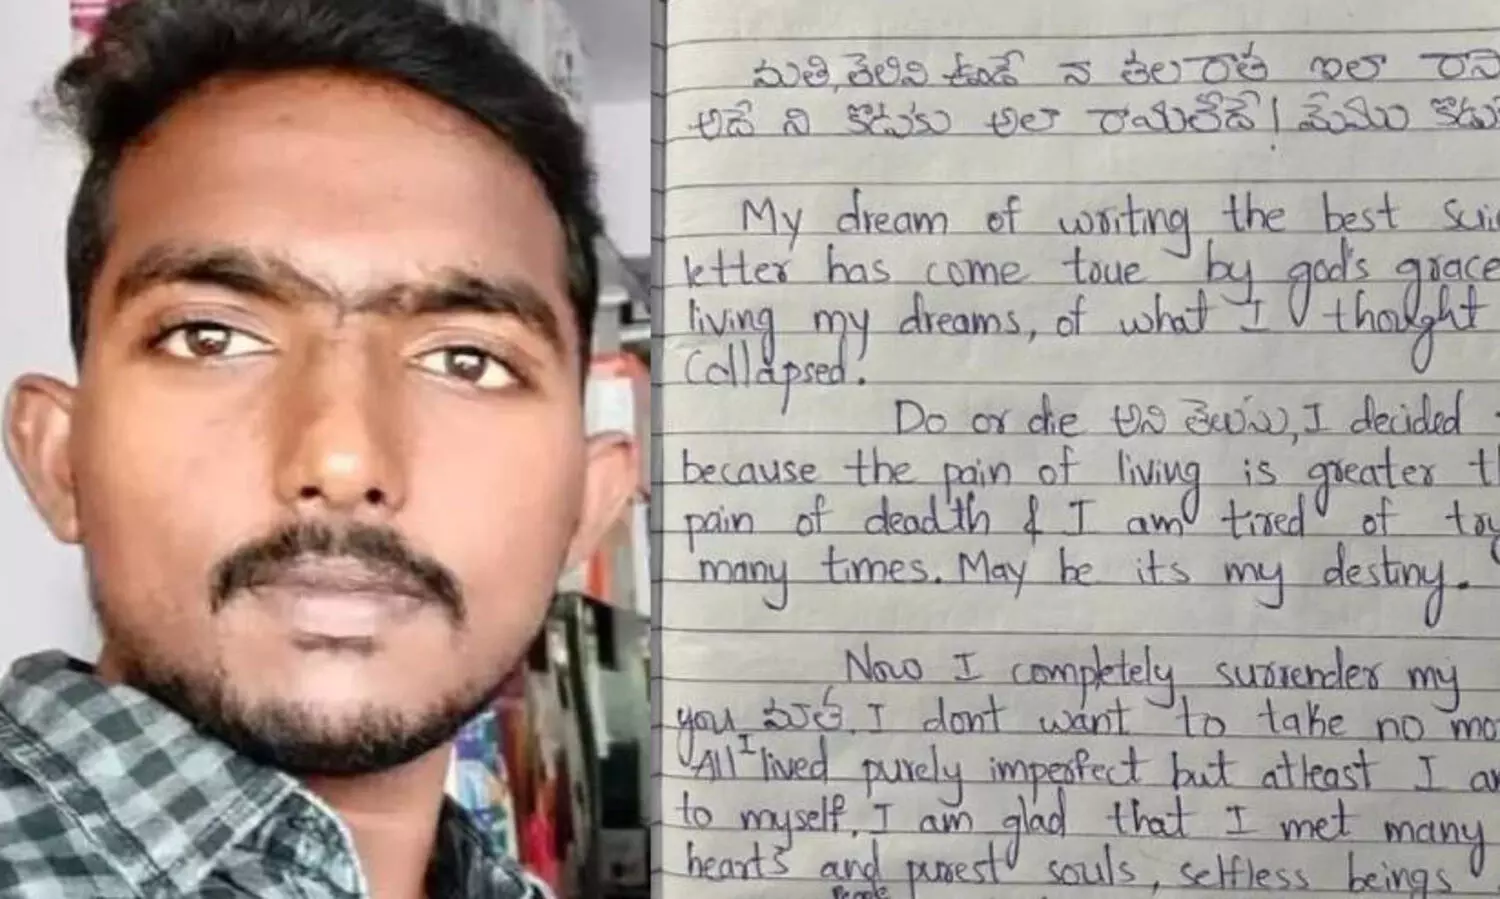 తెలివి నా తలరాత ఇలా
అదే ని కొడుకు అలా రాయలేదే! మేము
My dream of writing the best
letter has come true by god's grace
living my dreams, of what I thought
Collapsed.
Do or die అని తెలుసు, I decided
because the pain of living is greater
pain of deadth & I am tired of
many times. May be its my destiny.
Now I completely surrender my
you I dont want to take no
All I lived purely imperfect but atleast I
to myself. I am glad that I met many
hearts and purest souls, selfless beings
People